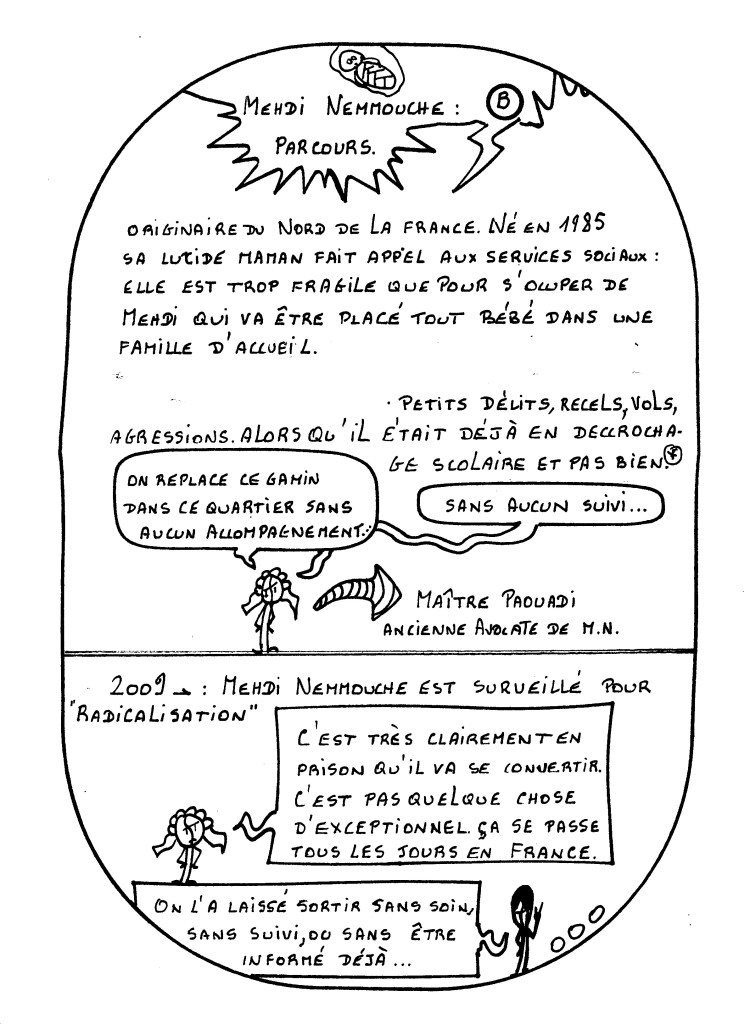 MEHDI NEMMOUCHE :
PARCOURS.
B
ORIGINAIRE DU NORD DE LA FRANCE. NÉ EN 1985
SA LUCIDE MAMAN FAIT APPEL AUX SERVICES SOCIAUX :
ELLE EST TROP FRAGILE QUE POUR S'OCCUPER DE
MEHDI QUI VA ÊTRE PLACÉ TOUT BÉBÉ DANS UNE
FAMILLE D'ACCUEIL.
. PETITS DÉLITS, RECELS, VOLS,
AGRESSIONS. ALORS QU'IL ÉTAIT DÉJÀ EN DECCROCHA-
GE SCOLAIRE ET PAS BIEN. *
ON REPLACE CE GAMIN
DANS CE QUARTIER SANS
AUCUN ACCOMPAGNEMENT...
SANS AUCUN SUIVI...
MAÎTRE PAOUADI
ANCIENNE AVOCATE DE M.N.
2009 → : MEHDI NEMMOUCHE EST SURVEILLÉ POUR
"RADICALISATION"
C'EST TRÈS CLAIREMENT EN
PRISON QU'IL VA SE CONVERTIR.
C'EST PAS QUELQUE CHOSE
D'EXCEPTIONNEL. ÇA SE PASSE
TOUS LES JOURS EN FRANCE.
ON L'A LAISSÉ SORTIR SANS SOIN,
SANS SUIVI, OU SANS ÊTRE
INFORMÉ DÉJÀ...